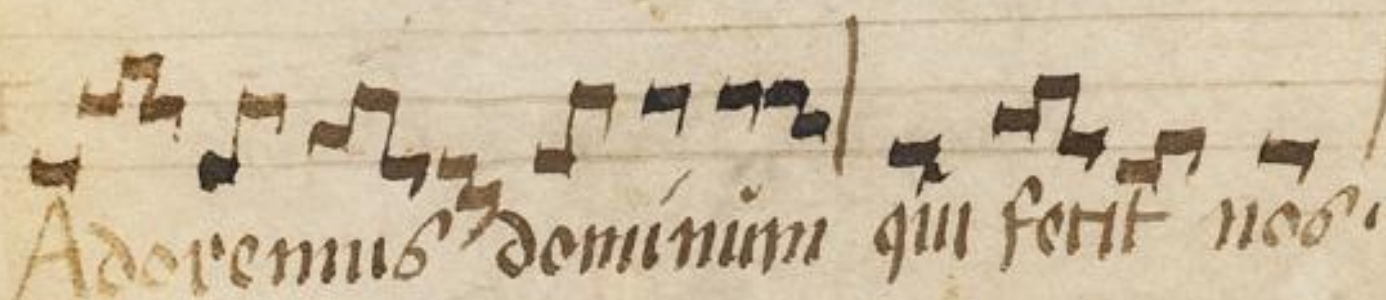 Adoremus dominum qui fecit nos.